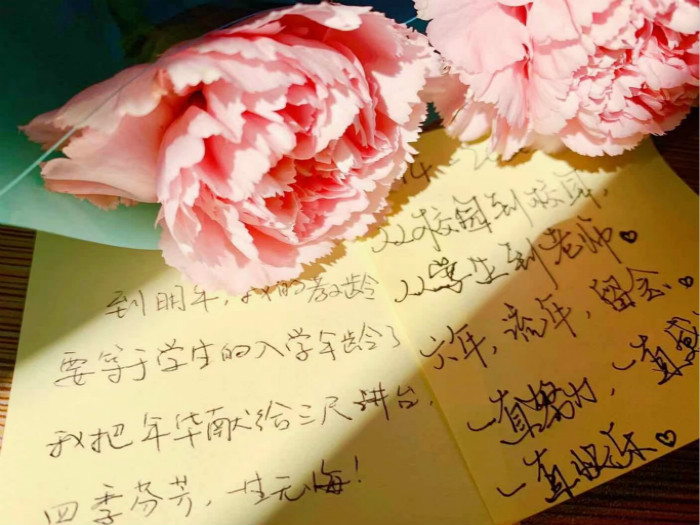 到明年,我的教龄
要等于学生的入学年龄了
我把年华献给三尺讲台,
四季芬芳,一生无悔!
从校园到校园,
从学生到老师♥
六年,流年,留念.
一直努力,一直
一直快乐♥